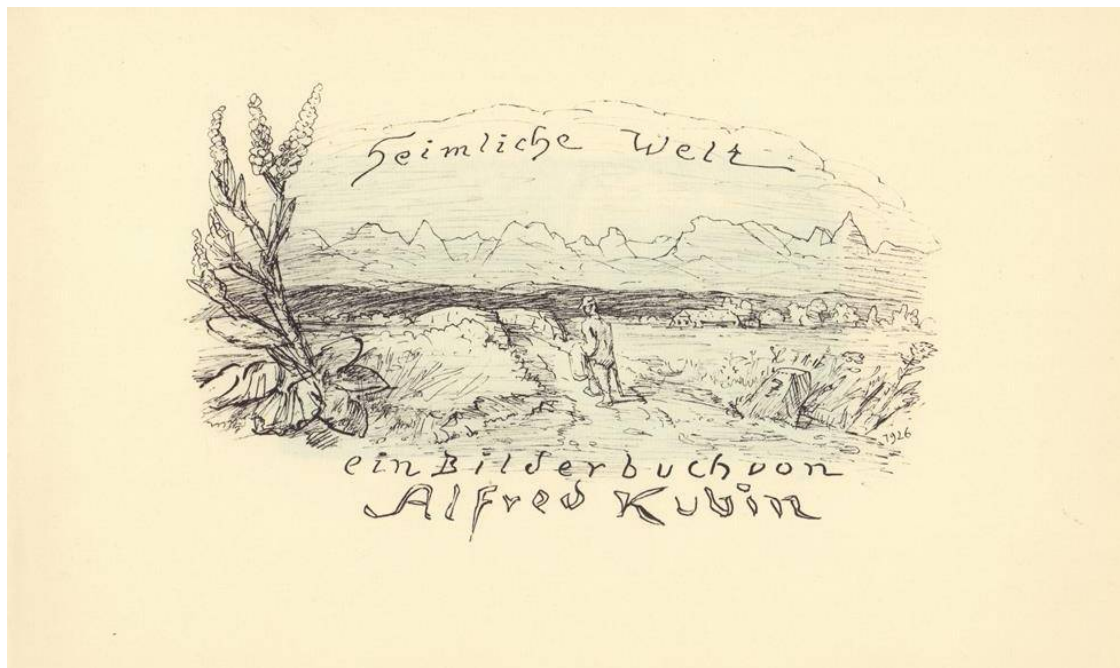 heimliche Welt
7
1926
ein Bilderbuch von
Alfred Kubin